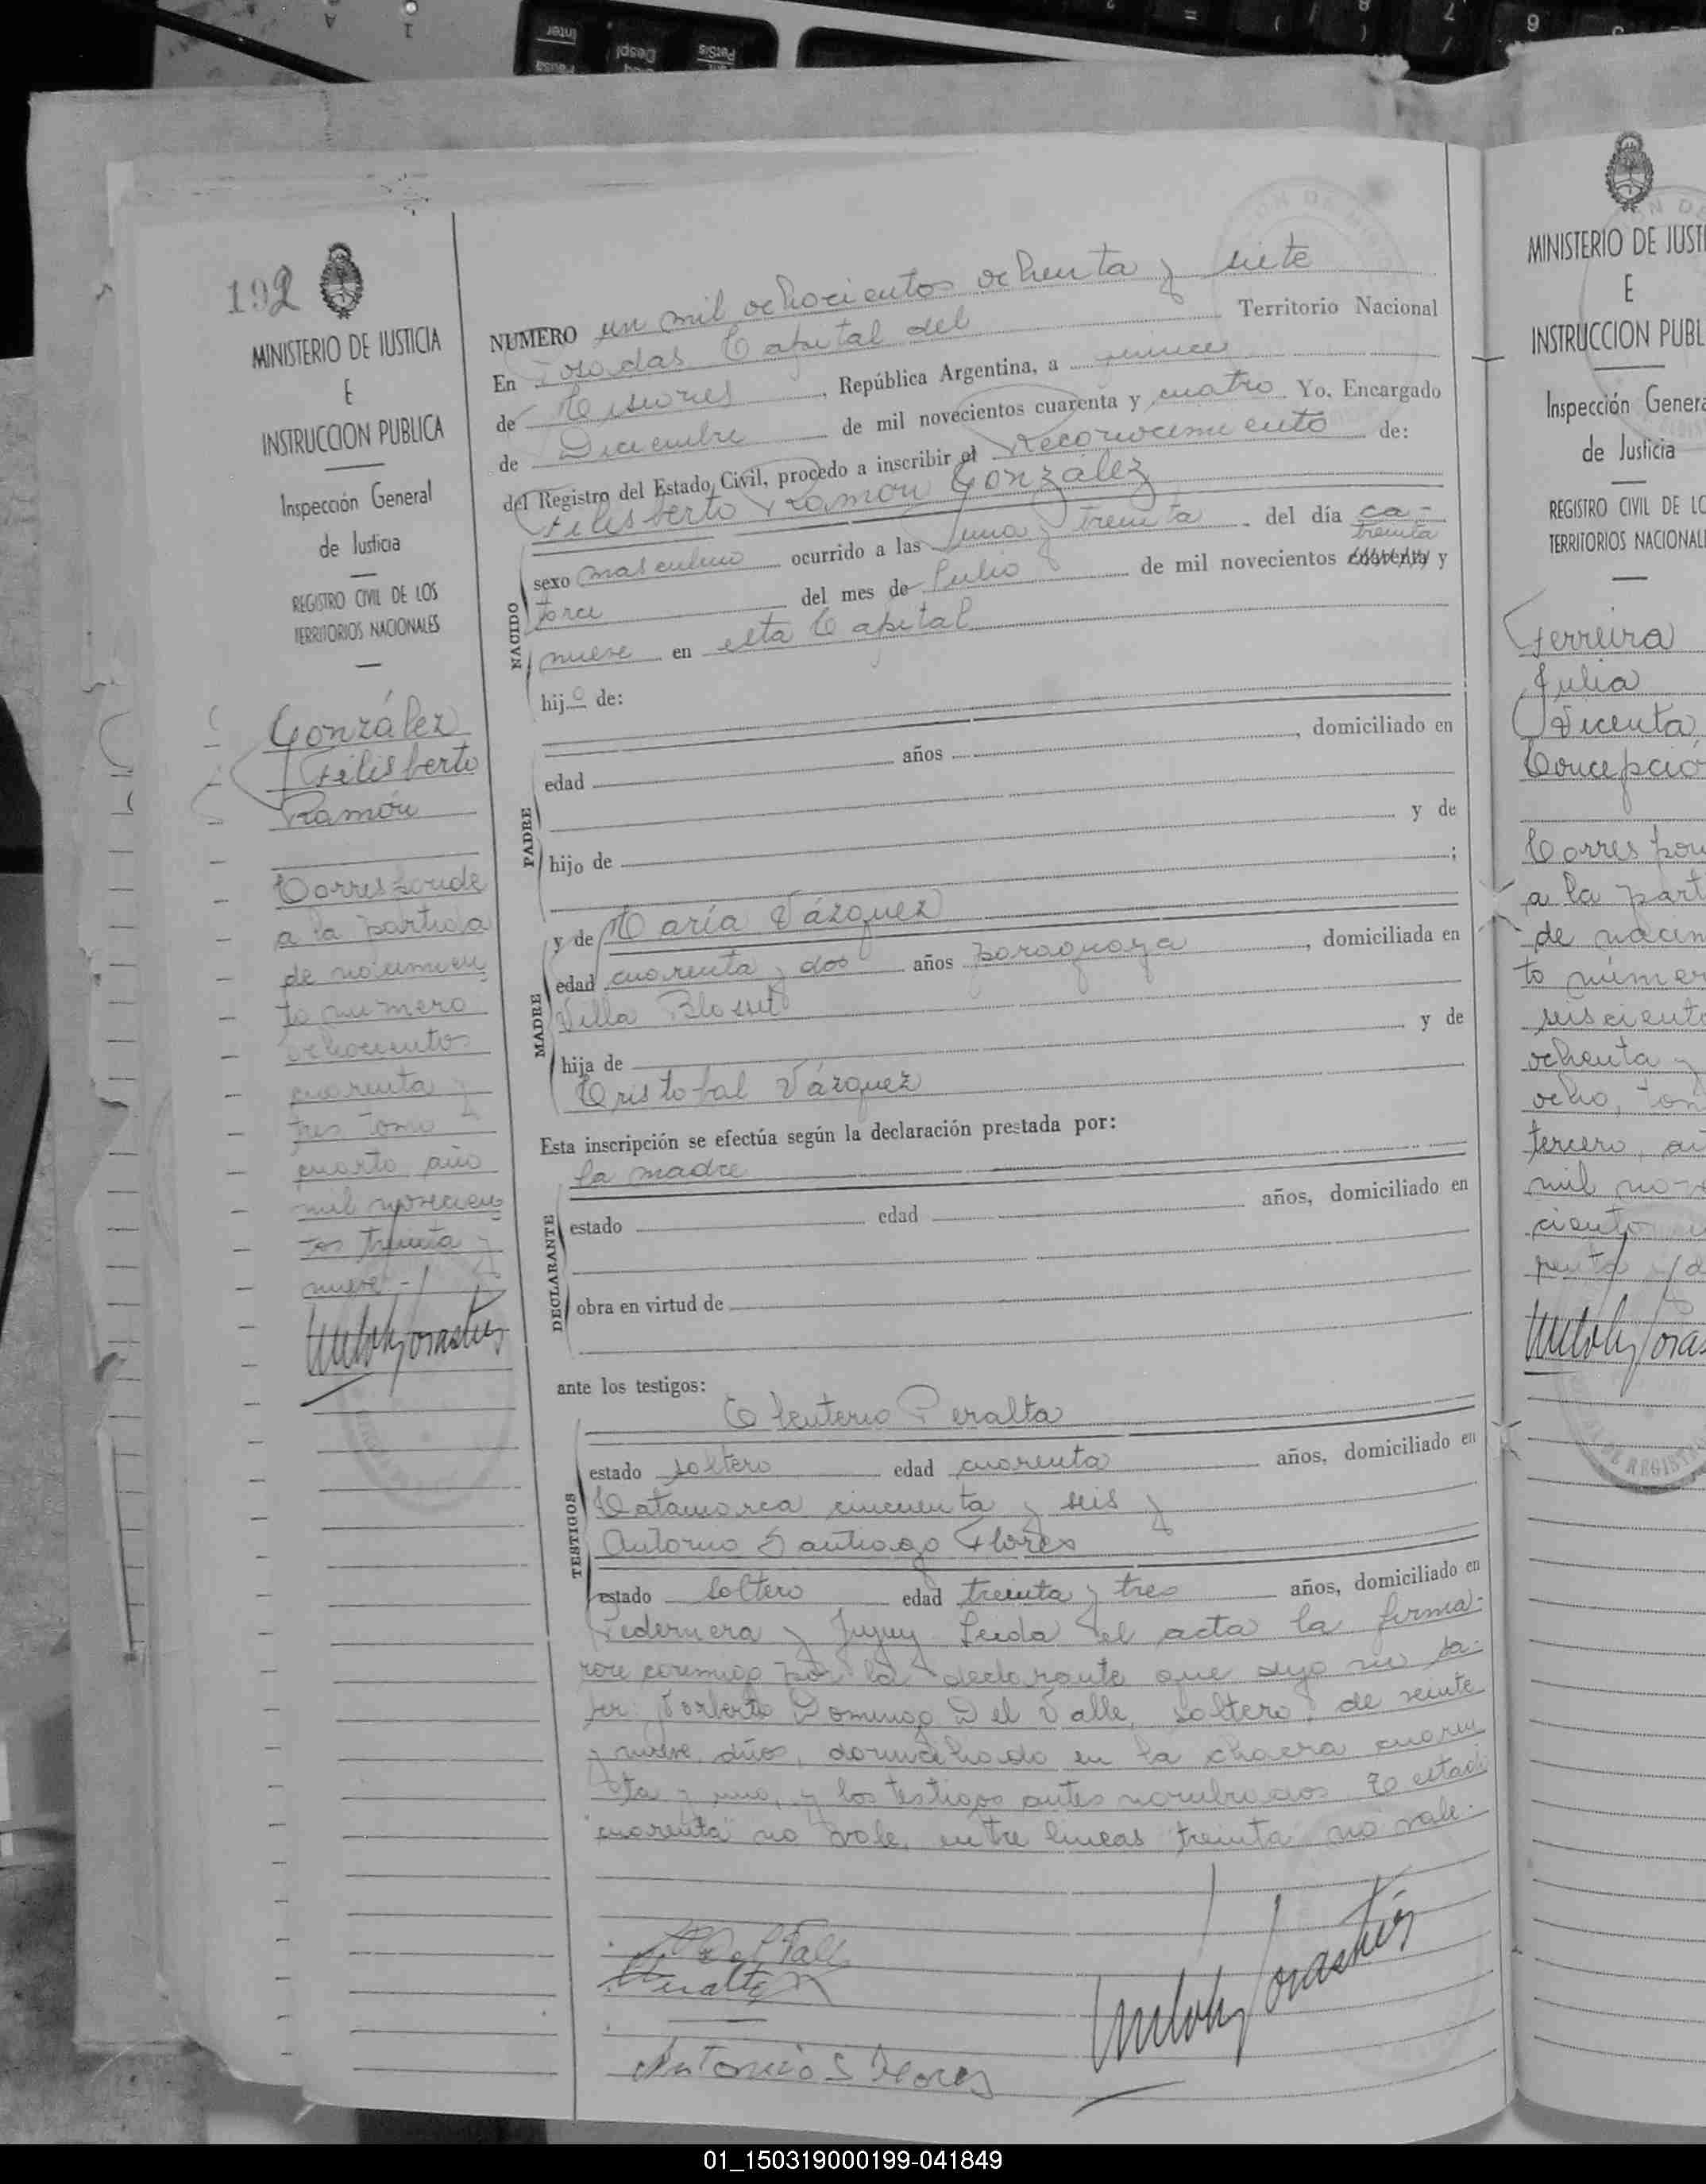 192
MINISTERIO DE JUSTICIA
E
INSTRUCCION PUBLICA
Inspección General
de Justicia
REGISTRO CIVIL DE LOS
TERRITORIOS NACIONALES
González
Filisberto
Ramón
Corresponde
a la partida
de nacimien
to numero
ochocientos
cuarenta y
tres tomo
cuarto, año
mil novecien
tos treinta y
nueve.-
NUMERO un mil ochocientos ochenta y siete
En Posadas Capital del Territorio Nacional
de Misiones, República Argentina, a quince
de Diciembre de mil novecientos cuarenta y cuatro Yo, Encargado
del Registro del Estado Civil, procedo a inscribir el Reconocimiento de:
Filisberto Ramón González
NACIDO
sexo masculino ocurrido a las una y treinta del día ca-
treinta
torce del mes de Julio de mil novecientos cuarenta y
nueve en esta Capital
hijo de:
PADRE
edad años, domiciliado en
hijo de y de
;
MADRE
y de María Vázquez
edad cuarenta y dos años paraguaya, domiciliada en
Villa Blosset
hija de y de
Cristobal Vázquez
Esta inscripción se efectúa según la declaración prestada por:
DECLARANTE
la madre
estado edad años, domiciliado en
obra en virtud de
ante los testigos:
TESTIGOS
Eleuterio Peralta
estado soltero edad cuarenta años, domiciliado en
Catamarca cincuenta y seis y
Antonio Santiago Flores
estado soltero edad treinta y tres años, domiciliado en
Pedernera y Jujuy Leida el acta la firma-
ron conmigo por la declarante que dijo no sa-
ber: Norberto Domingo Del Valle, soltero, de veinte
y nueve años, domiciliado en la chacra cuaren
ta y uno, y los testigos antes nombrados. Testad
"cuarenta" no vale, entre lineas "treinta" no vale.-
Del Valle
Peralta
Antonio S Flores
MINISTERIO DE JUSTI
E
INSTRUCCION PUBL
Inspección Genera
de Justicia
REGISTRO CIVIL DE LO
TERRITORIOS NACIONAL
Ferreira
Julia
Vicenta
Concepció
Corres pon
a la part
de nacim
to númer
seiscient
ochenta y
ocho, tom
tercero, añ
mil nove
cientos
01_150319000199-041849